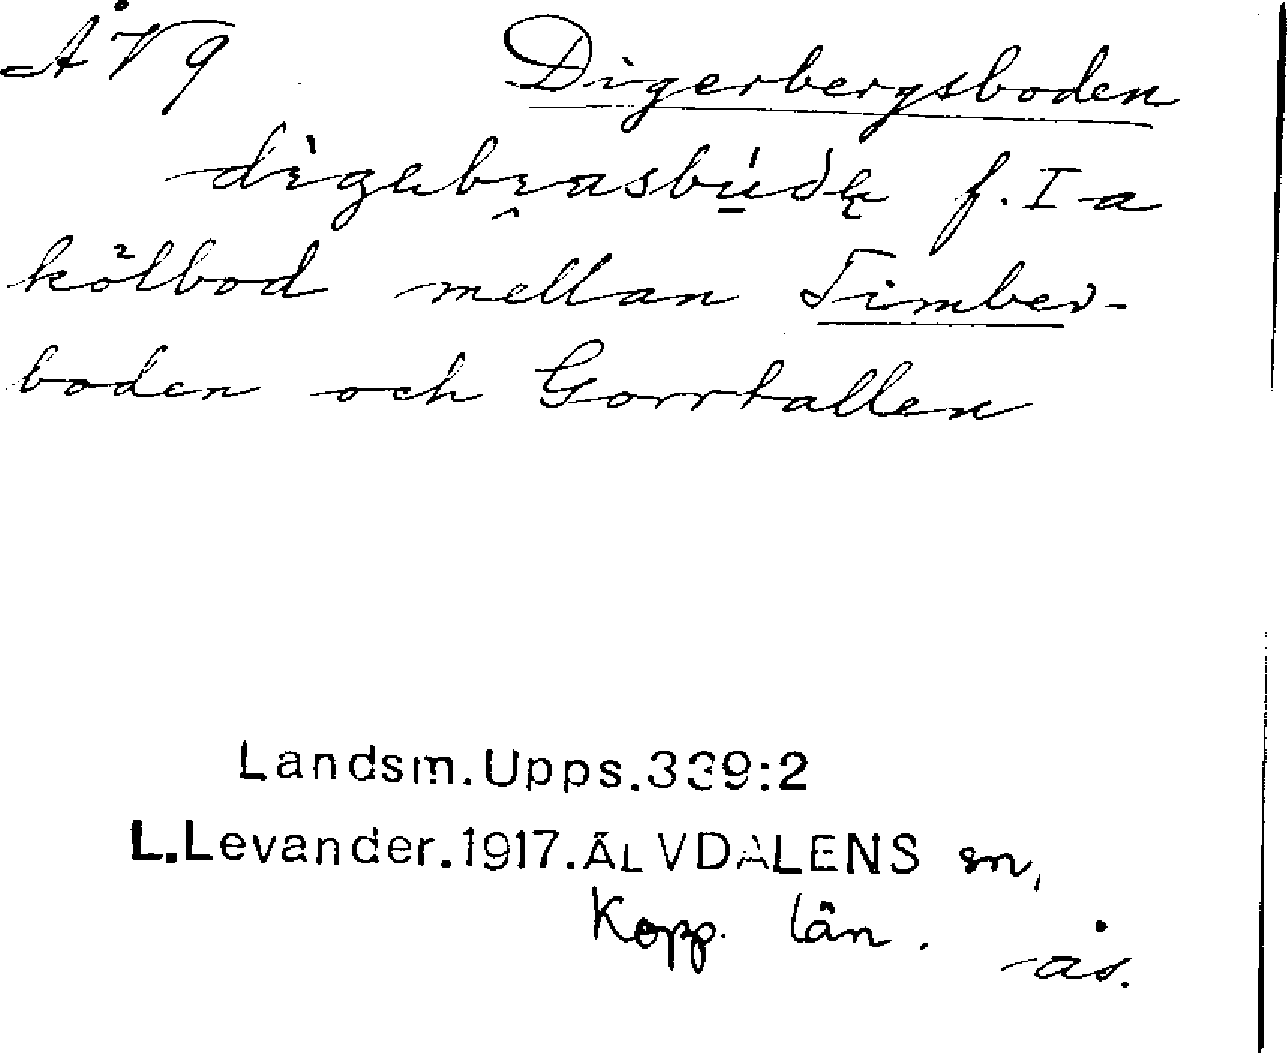 ÅV9 Digerbergsboden
f. I a
kölbod mellan Timber-
boden och Gorrtallen
Landsm.Upps.339:2
L.Levander.1917.ÄLVDALENS sn,
Kopp. län.
ås.